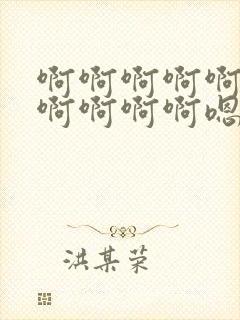 啊啊啊啊啊
啊啊啊啊嗯
洪某荣